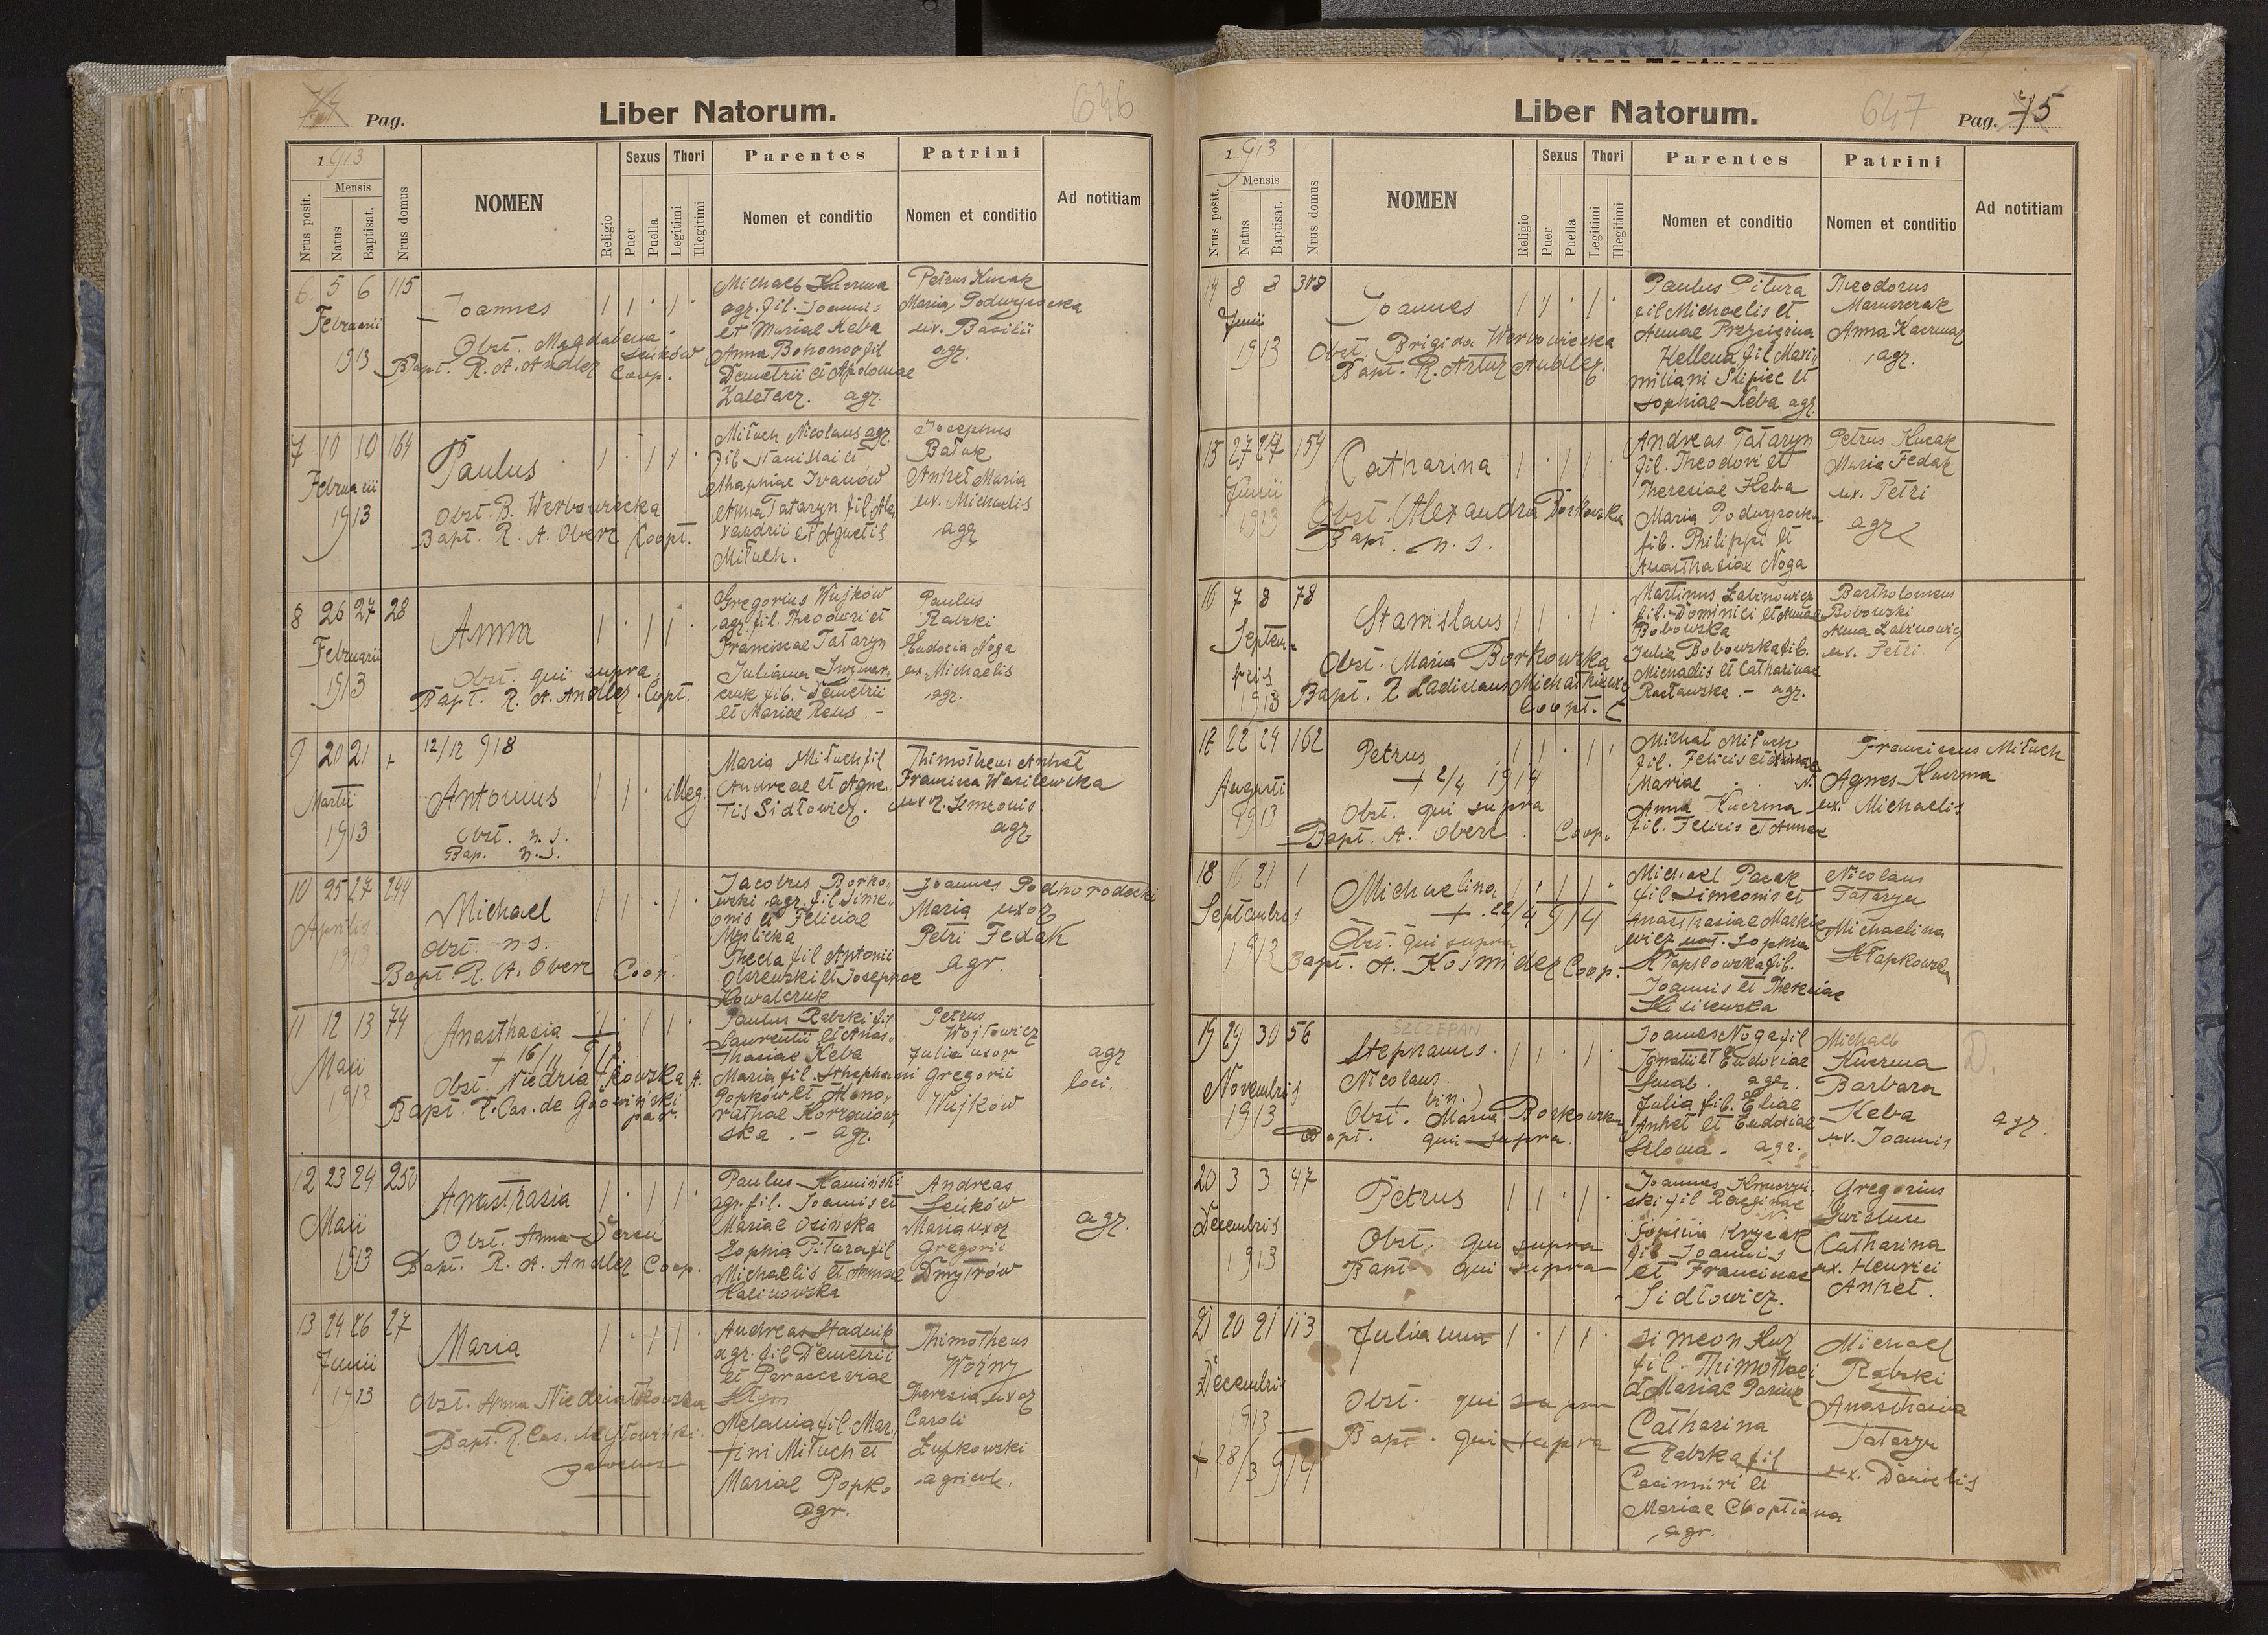 Pag.
Liber Natorum.
646
1913
Nrus posit.
Mensis
Natus
Baptisat.
Nrus domus
NOMEN
Religio
Sexus
Puer
Puella
Thori
Legitimi
Illegitimi
Parentes
Nomen et conditio
Patrini
Nomen et conditio
Ad notitiam
6. 5 6 115
Februarii
1913
Joannes
Obst. Magdalena
Senków
Bapt. R. A. Andler Coop.
Michael Kuczma
agr. fil. Joannis
et Mariae Keba
Anna Bohonos fil
Demetrii et Apoloniae
agr.
Petrus Kucak
Maria Podwysocka
ux. Basilii
agr.
7 10 164
Februarii
1913
Paulus
Obst. B. Werbowiecka
Bapt. R. A. Oberc Coopt.
Mituch Nicolaus agr.
fil Stanislai et
Ivanów
Anna Tataryn fil Ale
xandrii et Agnetis
Mituch.
Josephus
Bałuk
Anhel Maria
ux. Michaelis
agr
8 26 27 28
Februarii
1913
Anna
Obst. qui supra
Bapt. R. A. Andler Copt.
Gregorius Wujków
agr. fil. Theodori et
Franciscae Tataryn
Juliana
fil. Demetrii
et Mariae Reus. -
Paulus
Rabski
Eudoxia Noga
ux. Michaelis
agr.
9 20 21 +
Martii
1913
12/12 918
Antonius
illeg.
Obst. n. s.
Bap. n. s.
Maria Mituch fil
Andreae et Agne
tis Sidłowicz.
Thimotheus Anhel
Francisca Wasilewska
uxor. Simeonis
agr
10 25 27 244
Aprilis
1913
Michael
Obst. n s.
Bapt. R. A. Oberc Coop.
Jacobus Borko
wski agr. fil. Sime
onis et Feliciae
Myslicka
Thecla fil Antonii
Olszewski et Josephae
Kowalczuk
Joannes Podhorodecki
Maria uxor
Petri Fedak
agr.
11 12 13 74
Maii
1913
Anasthasia
Obst. Niedziałkowska A.
Bapt. R. Cas. de Głowiński
par.
Paulus Rabski fil
Laurentii et Anas
thasiae Keba
Maria fil. Sthephani
Popków et Hono
rathae Korzeniow
ska. - agr.
Petrus
Wojtowicz
Julia uxor
Gregorii
Wujków
agr
loci.
12 23 24 250
Maii
1913
Anasthasia
Obst. Anna Dereń
Bapt. R. A. Andler Coop.
Paulus Kaminski
agr. fil. Joannis et
Mariae Osinska
Sophia Pitura fil
Michaelis et Annae
Kalinowska
Andreas
Senków
Maria uxor
Gregorii
Dmytrów
agr.
13 24 26 27
Junii
1913
Maria
Obst. Anna Niedziałkowska
Bapt. R. Cas. de Głowiński.
Andreas Stadnik
agr. fil Demetrii
et Parasceviae
Melania fil. Mar
tini Mituch et
Mariae Popko
agr.
Thimotheus
Woźny
Theresia uxor
Caroli
Łupkowski
agricole.
Liber Natorum.
647
Pag. 75
1913
Nrus posit.
Mensis
Natus
Baptisat.
Nrus domus
NOMEN
Religio
Sexus
Puer
Puella
Thori
Legitimi
Illegitimi
Parentes
Nomen et conditio
Patrini
Nomen et conditio
Ad notitiam
14 8 8 308
Junii
1913
Joannes
Obst. Brigida Werbowiecka
Bapt. R. Artur Andler.
Paulus Pitura
fil Michaelis et
Annae
Hellena fil Maxi
miliani Slipiec et
Sophiae Keba agr.
Theodorus
Anna Kaczmar
agr.
15 27 27 159
Junii
1913
Catharina
Obst. Alexandra Borkowska
Bapt. n. s.
Andreas Tataryn
fil. Theodori et
Theresiae Keba
Maria Podwysocka
fil. Philippi et
Anasthasiae Noga
Petrus Kucak
Maria Fedak
ux. Petri
agr
16 7 8 78
Septem-
bris
1913
Stanislaus
Obst. Maria Borkowska
Bapt. R Ladislaus
Coopt.
Martinus Labinowicz
fil. Dominici et Annae
Bobowska
Julia Bobowska fil.
Michaelis et Catharinae
Racławska. - agr.
Bartholomeus
Bobowski
Anna Labinowicz
ux. Petri
17 22 24 162
Augusti
1913
Petrus
+ 2/4 1914
Obst. qui supra
Bapt. A. Oberc. Coop.
Michal Mituch
fil. Felicis et Annae
Mariae N.
Anna Kuczma
fil. Felicis et Annae
Franciscus Mituch
Agnes Kuczma
ux. Michaelis
18 16 21 1
Septembris
1913
Michaelina
+ 22/4 914
Obst. qui supra
Bapt. A. Kośmider Coop.
Michael Pacak
fil Simeonis et
Anasthasiae Mackie
wicz nat. Sophia
Kłapkowska fil.
Joannis et Theresiae
Nicolaus
Tataryn
Michaelina
Kłapkowska
19 29 30 56
Novembris
1913
SZCZEPAN
Stephanus.
Nicolaus
bin.
Obst. Maria Borkowska
Bapt. qui supra.
Joannes Noga fil
Ignatii et Eudoxiae
agr.
Julia fil. Eliae
Anhel et Eudoxiae
agr.
Michael
Kuczma
Barbara
Keba
ux. Joannis
D.
agr.
20 3 3 47
Decembris
1913
Petrus
Obst. qui supra
Bapt. qui supra
ski fil Reginae
N.
fil Joannis
et Franciscae
Sidłowicz.
Gregorius
Catharina
ux. Henrici
Anhel.
21 20 21 113
Decembris
913
+ 28/3 914
Julianna
Obst. qui supra
Bapt. qui supra
Simeon Huz
fil. Thimothei
et Mariae
Catharina
Rabska fil
Casimiri et
Mariae Choptiana
agr.
Michael
Rabski
Anasthasia
Tataryn
ux. Danielis